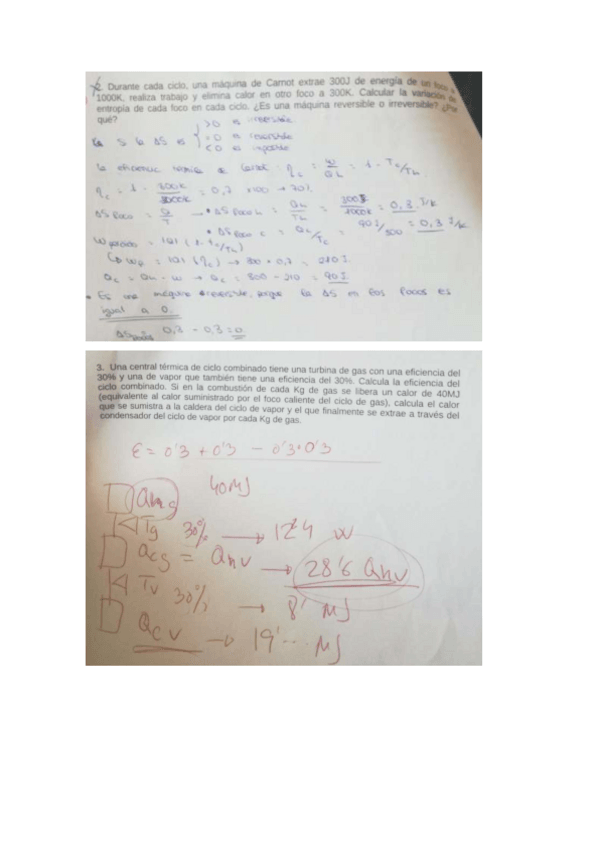 2. Durante cada ciclo, una máquina de Carnot extrae 300J de energía de un foco a
1000K, realiza trabajo y elimina calor en otro foco a 300K. Calcular la variación de
entropía de cada foco en cada ciclo. ¿Es una máquina reversible o irreversible? ¿Por
qué?
>0 es irreversible
Si la ΔS es =0 es reversible
<0 es imposible
la eficiencia térmica de Carnot: ηc = W/Qh = 1 - Tc/Th
ηc = 1 - 300K/1000K = 0,7 x100 → 70%
ΔS foco = Q/T → • ΔS foco h = Qh/Th = 300J/1000K = 0,3 J/K
• ΔS foco c = Qc/Tc = 90J/300 = 0,3 J/K
W = |Q| (1-Tc/Th)
W = |Q| (ηc) → 300 • 0,7 = 210J
Qc = Qh - W → Qc = 300 - 210 = 90J
• Es una máquina reversible, porque la ΔS en los focos es
igual a 0.
0,3 - 0,3 = 0
3. Una central térmica de ciclo combinado tiene una turbina de gas con una eficiencia del
30% y una de vapor que también tiene una eficiencia del 30%. Calcula la eficiencia del
ciclo combinado. Si en la combustión de cada Kg de gas se libera un calor de 40MJ
(equivalente al calor suministrado por el foco caliente del ciclo de gas), calcula el calor
que se sumistra a la caldera del ciclo de vapor y el que finalmente se extrae a través del
condensador del ciclo de vapor por cada Kg de gas.
ε = 0'3 + 0'3 - 0'3•0'3
Qhg 40MJ
Tg 30% → 12'4 W
Qcg = Qhv → 28'6 Qhv
Tv 30% → 8' MJ
Qcv → 19'... MJ